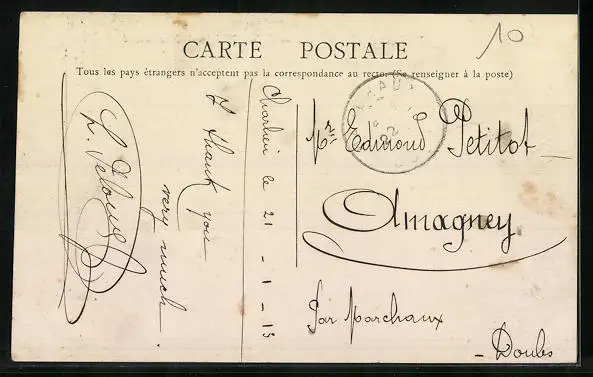 10
CARTE POSTALE
Tous les pays étrangers n'acceptent pas la correspondance au recto. (Se renseigner à la poste)
le 21 - 1 - 15
I thank you
very much
Mr Edmond Petitot
Amagney
Par Marchaux
- Doubs
22